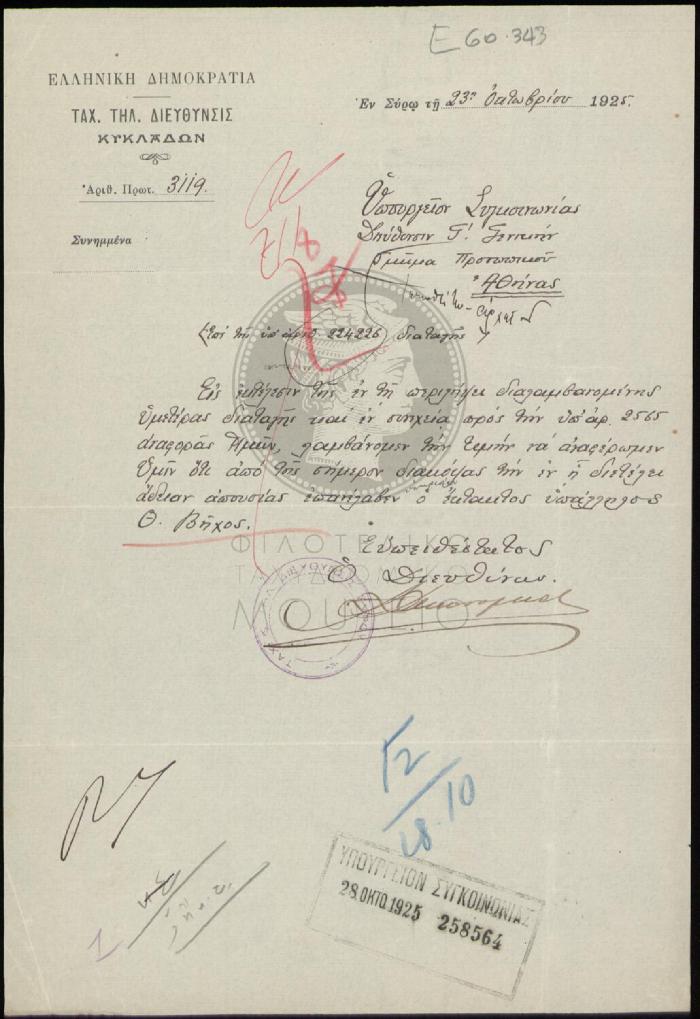 E 60.343
ΕΛΛΗΝΙΚΗ ΔΗΜΟΚΡΑΤΙΑ
ΤΑΧ. ΤΗΛ. ΔΙΕΥΘΥΝΣΙΣ
ΚΥΚΛΑΔΩΝ
Ἀριθ. Πρωτ. 3119
Συνημμένα
Ἐν Σύρῳ τῇ 23ῃ Ὀκτωβρίου 1925
Ὑπουργεῖον Συγκοινωνίας
Διεύθυνσιν Γ' Γενικήν
Τμῆμα Προσωπικοῦ
Ἀθήνας
Ἐπὶ τῆς ὑπ' ἀριθ. 224226 διαταγῆς
Εἰς ἐκτέλεσιν τῆς ἐν τῇ περιλήψει διαλαμβανομένης
ὑμετέρας διαταγῆς καὶ ἐν συνεχείᾳ πρὸς τὴν ὑπ' ἀρ. 2565
ἀναφορὰς ἡμῶν, λαμβάνομεν τὴν τιμὴν νὰ ἀναφέρωμεν
ὑμῖν ὅτι ἀπὸ τῆς σήμερον διακόψας τὴν ἐν ᾗ διετέλει
ἄδειαν ἀπουσίας ἐπανέλαβεν ὁ ἔκτακτος ὑπάλληλος
Θ. Βῆχος.
Εὐπειθέστατος
Ὁ Διευθύνας.
ΦΙΛΟΤΕΛΙΚΟ
ΤΑΧΥΔΡΟΜΙΚΟ
ΜΟΥΣΕΙΟ
Γ2
28.10
ΥΠΟΥΡΓΕΙΟΝ ΣΥΓΚΟΙΝΩΝΙΑΣ
28.ΟΚΤΟ.1925 258564